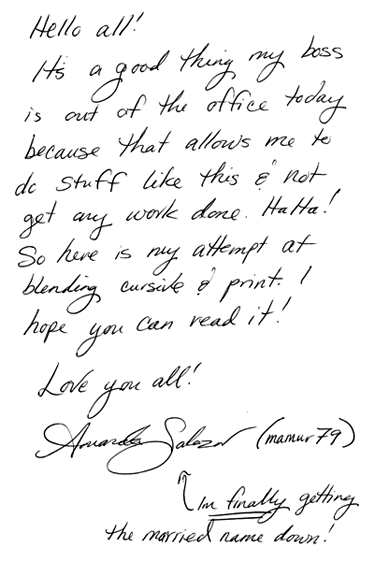 Hello all!
It's a good thing my boss
is out of the office today
because that allows me to
do stuff like this & not
get any work done. HaHa!
So here is my attempt at
blending cursive & print. I
hope you can read it!
Love you all!
Amanda Salazar (mamur79)
Im finally getting
the married name down!